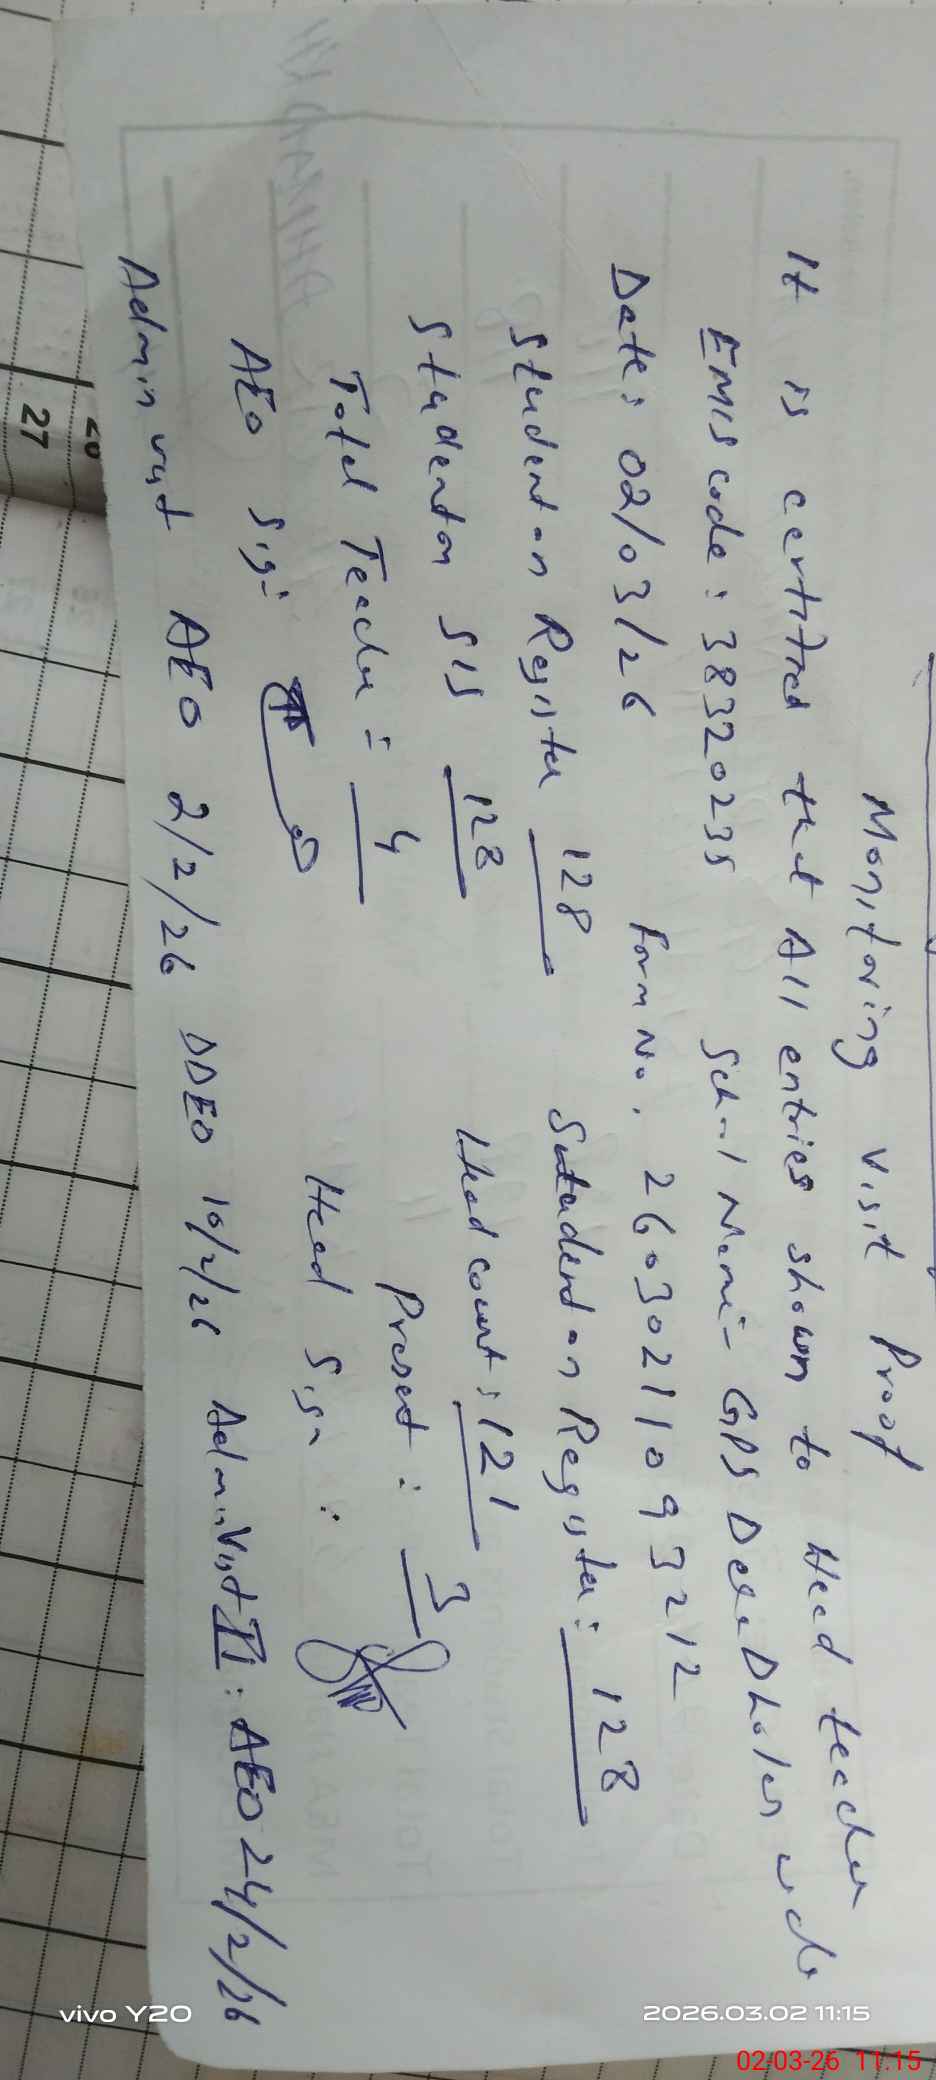 Monitoring visit Proof
It is certified that All entries shown to Head teacher
EMIS code: 38320235 School Name:- GPS Dera
Date: 02/03/26 Form No. 26030211093212
Student on Register 128 Sutudent on Register: 128
Student on SIS 128 Head count: 121
Total Teacher = 4 Present: 3
AEO Sig: Head Sign:
Admin visit AEO 2/2/26 DDEO 10/2/26 Admin Visit II: AEO 24/2/26
27
vivo Y20
2026.03.02 11:15
02-03-26 11.15